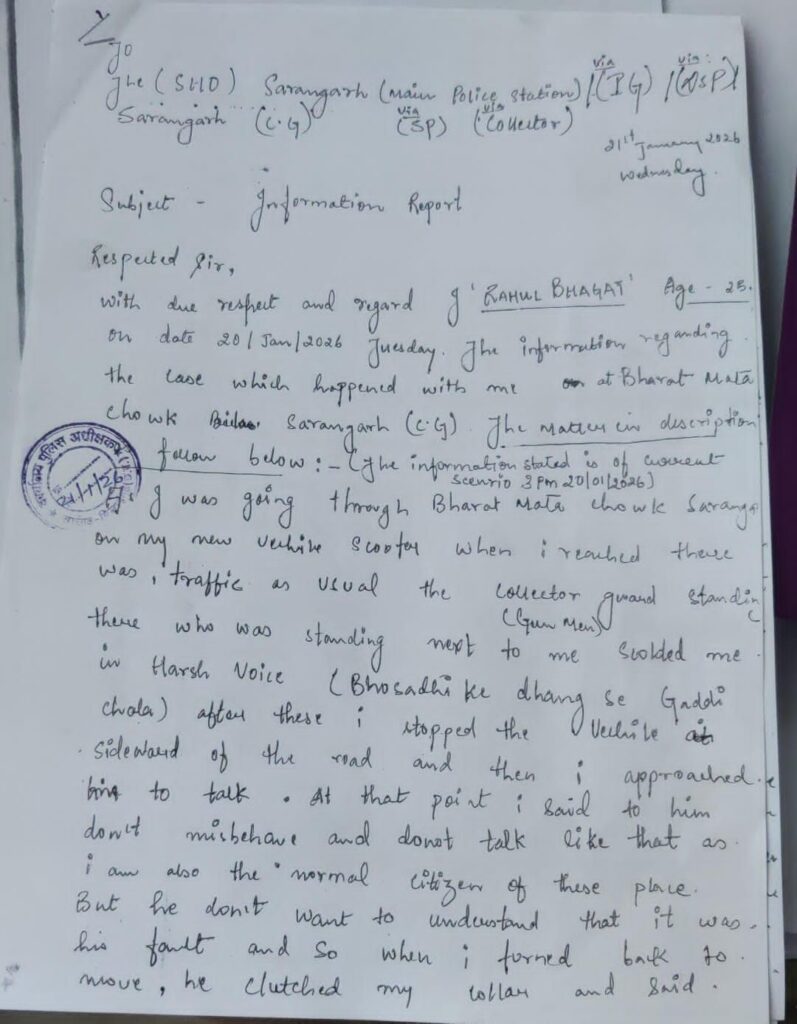 To
The (SHO) Sarangarh (Main Police Station) / via (IG) / via: (DSP)
Sarangarh (C.G) via (SP) via (Collector)
21st January 2026
Wednesday.
Subject - Information Report
Respected Sir,
With due respect and regard I 'RAHUL BHAGAT' Age - 25.
on date 20/Jan/2026 Tuesday. The information reganding
the case which happened with me at Bharat Mata
chowk Sarangarh (C.G). The matter in description
follow below :- (The information stated is of current
scenrio 3 Pm 20/01/2026)
I was going through Bharat Mata chowk Saranga
on my new Vechile Scooter when i reached there
was, traffic as usual the collector guard standin
(Gun Men)
there who was standing next to me Scolded me
in Harsh Voice (Bhosadhi ke dhang se Gaddi
chala) after these i stopped the Vechile
Sideward of the road and then i approached.
him to talk. At that point i said to him
don't misbehave and donot talk like that as
i am also the normal citizen of these place.
But he don't want to understand that it was.
his fault and so when i turned back to.
move, he clutched my collar and said.
पुलिस अधीक्षक
21/1/26